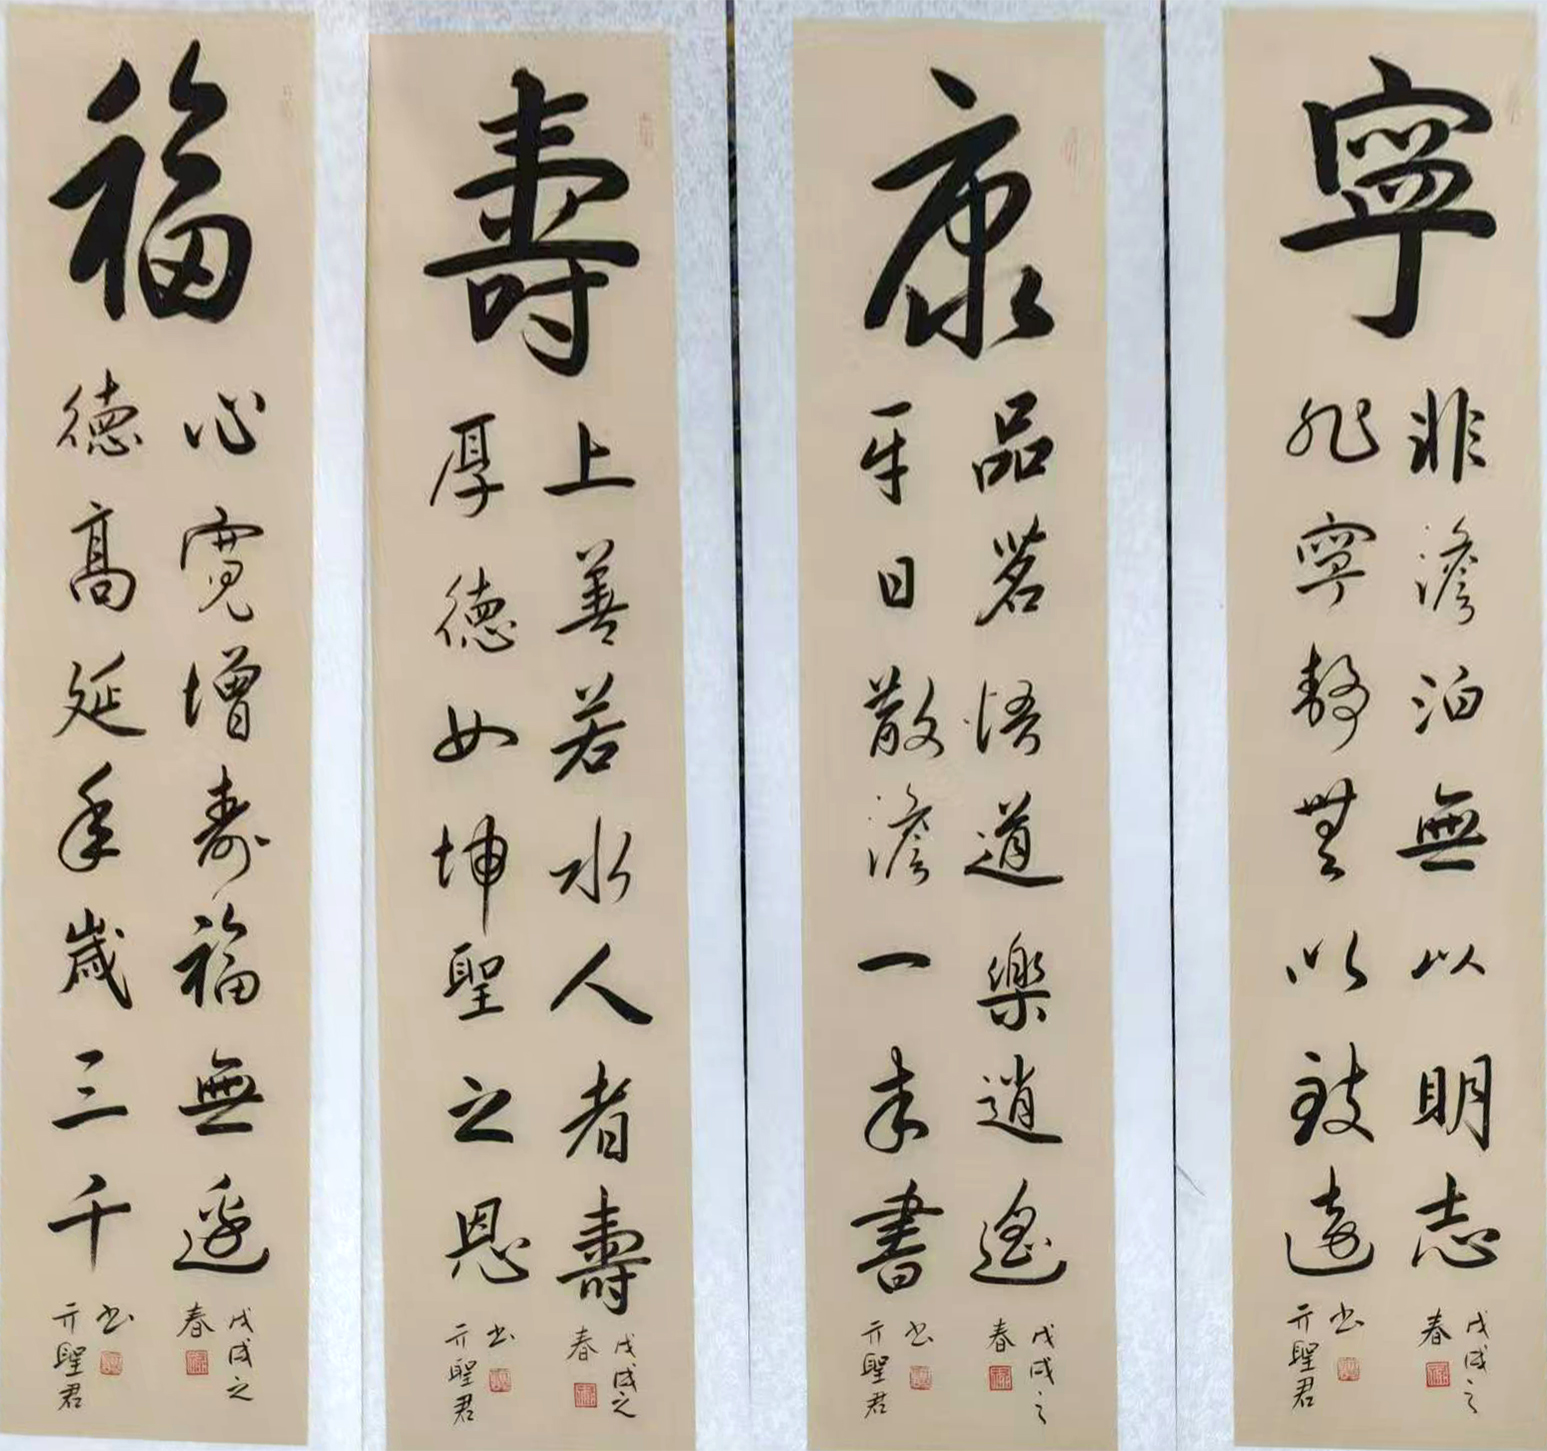 福
心寬增壽福無邊
德高延年歲三千
戊戌之
春
書
亓聖君
壽
上善若水人者壽
厚德如坤聖之恩
戊戌之
春
書
亓聖君
康
品茗悟道樂逍遙
半日散澹一本書
戊戌之
春
書
亓聖君
寧
非澹泊無以明志
非寧靜無以致遠
戊戌之
春
書
亓聖君